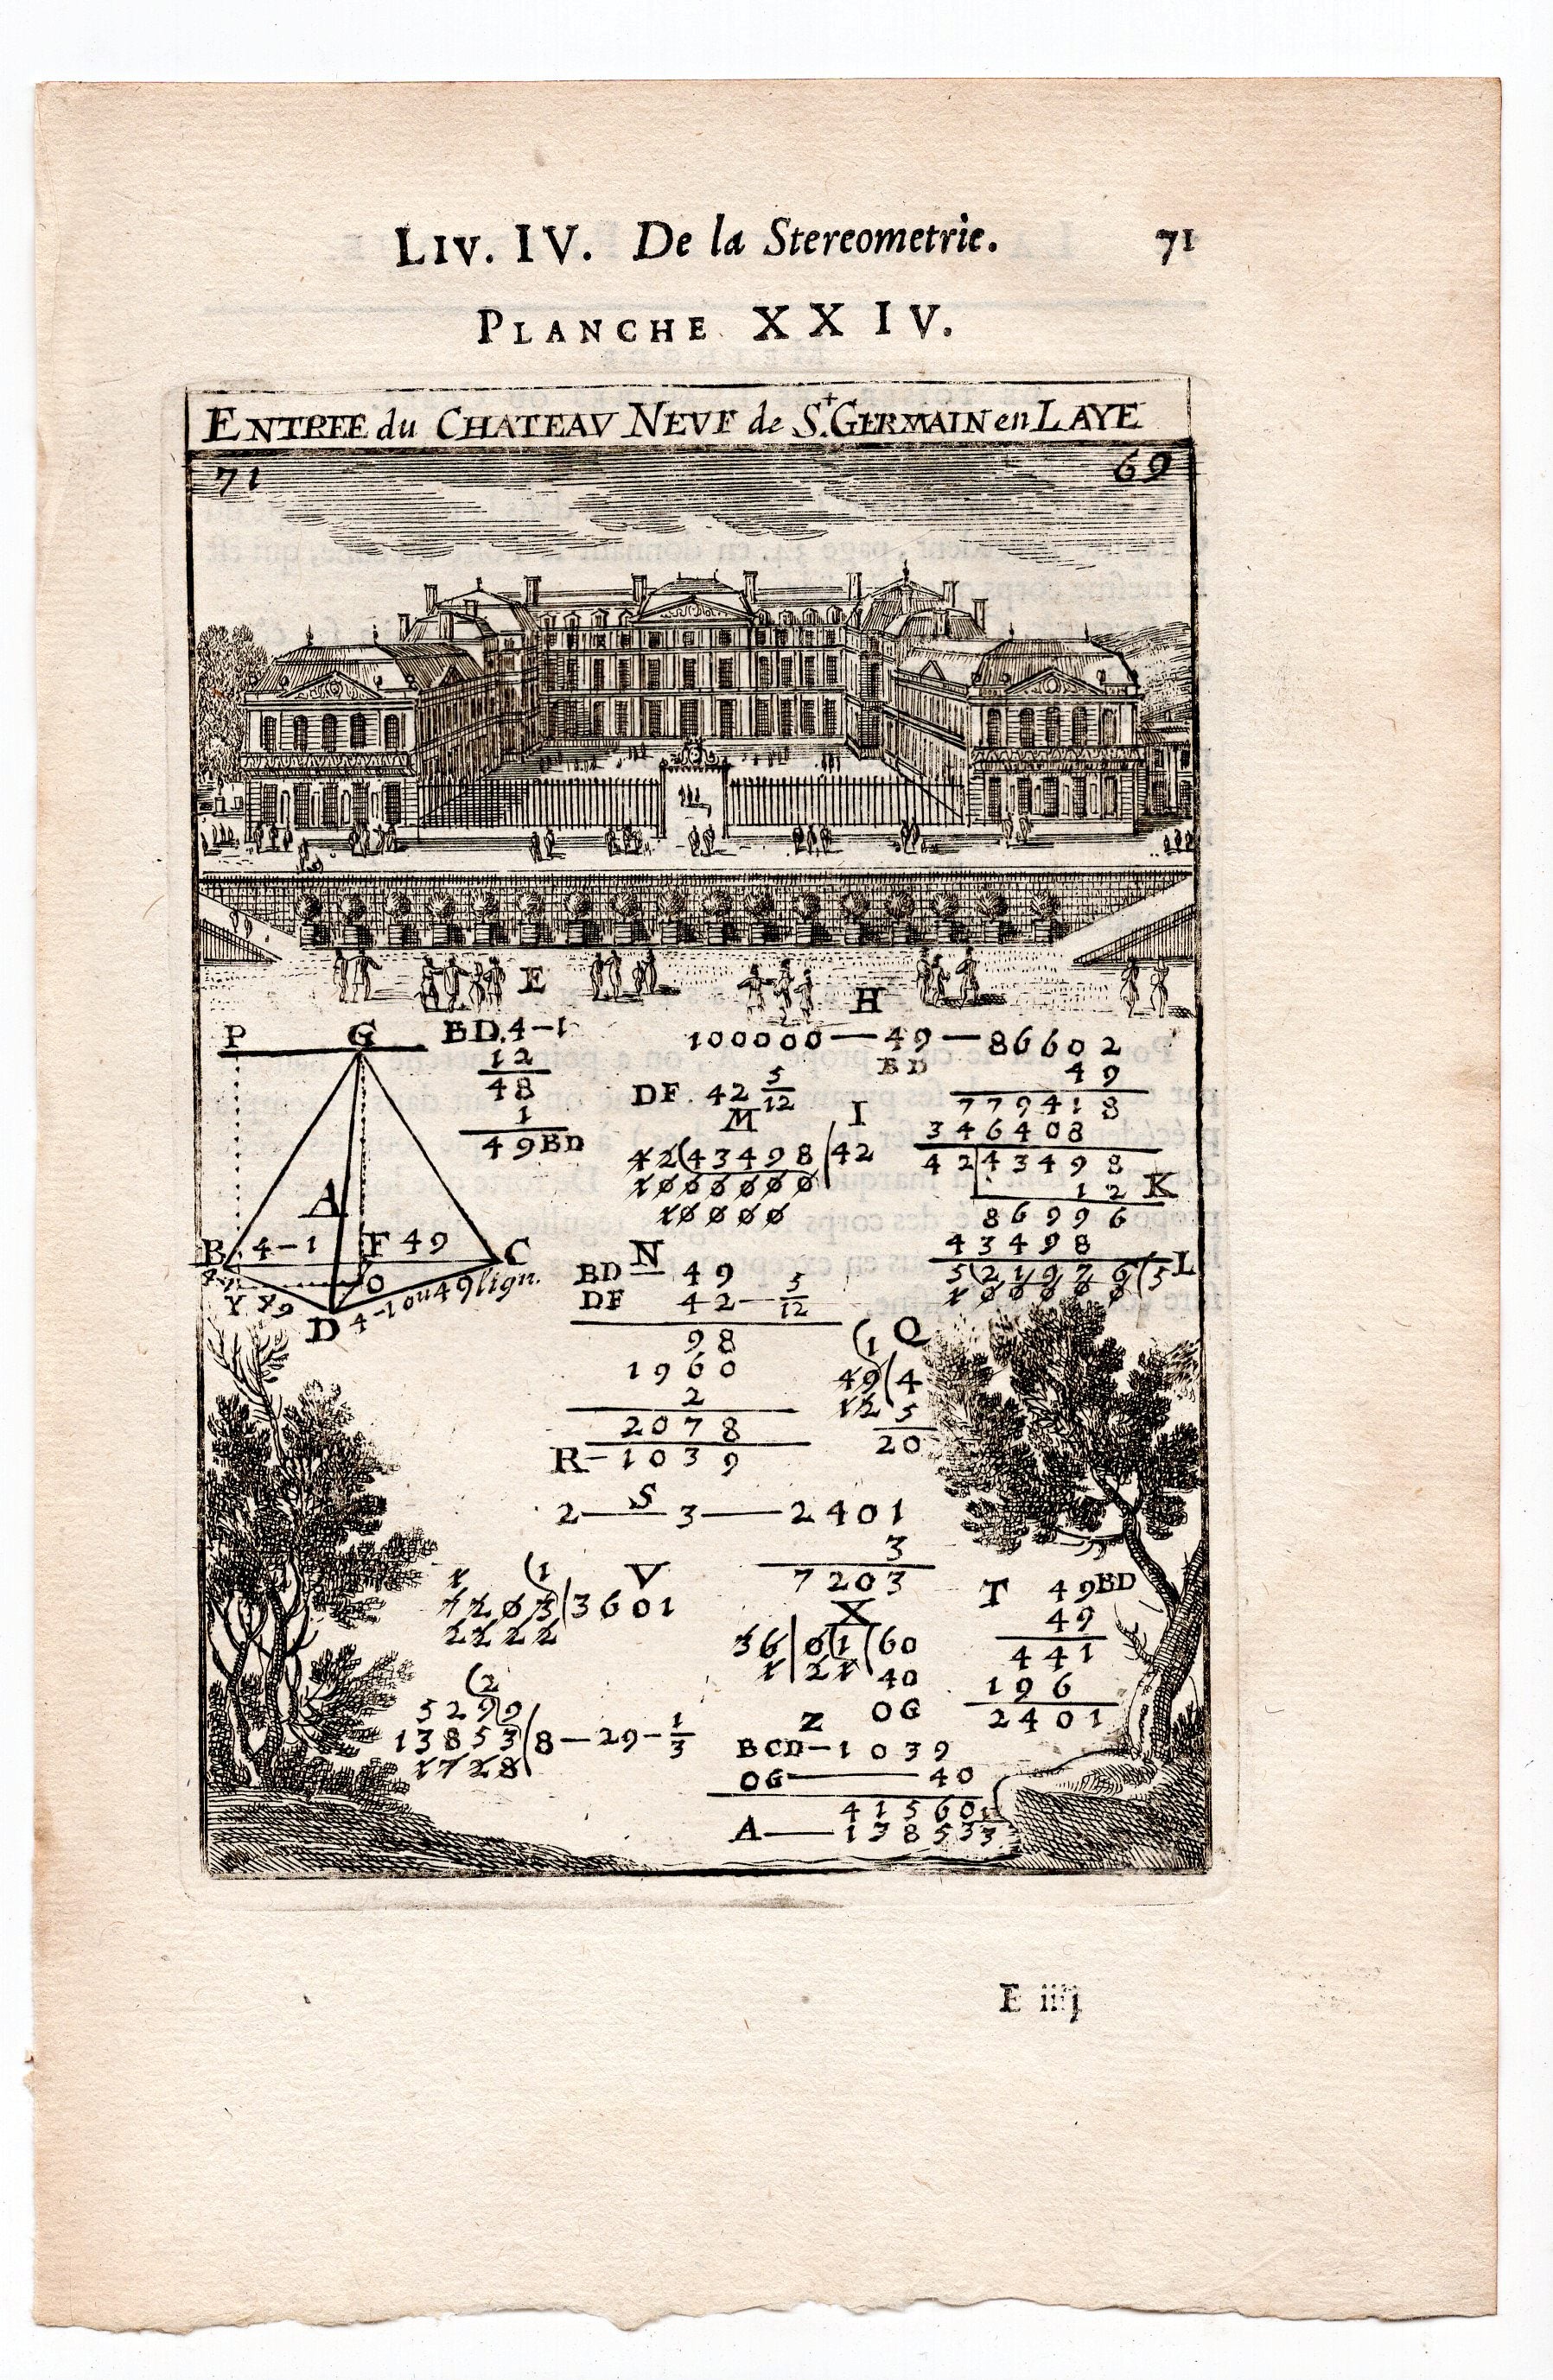 LIV. IV. De la Stereometrie. 71
PLANCHE XXIV.
ENTREE du CHATEAV NEVF de S.t GERMAIN en LAYE
71 69
E
H
P G BD.4-1
12
48
1
49BD
100000—49—86602
BD 49
779418
346408
4243498
12 K
86996
43498
5(21976(5 L
100000
DF. 42 5/12
M I
42(43498/42
1000000
10000
A
B 4-1 F 49 C
O
D 4-1 ou 49 lign.
N
BD — 49
DF 42— 5/12
98
1960
2
2078
R-1039
(1 Q
49(4
12 5
20
S
2—3—2401
3
7203
1 (1 V
7203(3601
2222
X
36|0(1(60
1|21 40
OG
T 49BD
49
441
196
2401
(2
5299
13853(8—29-1/3
1728
Z
BCD-1039
OG—40
41560
A—13853 1/3
E iiij